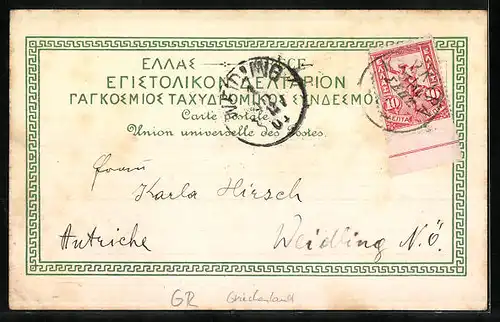 ΕΛΛΑΣ GRÈCE
ΕΠΙΣΤΟΛΙΚΟΝ ΔΕΛΤΑΡΙΟΝ
ΠΑΓΚΟΣΜΙΟΣ ΤΑΧΥΔΡΟΜΙΚΟΣ ΣΥΝΔΕΣΜΟΣ
Carte postale
Union universelle des Postes.
10
ΛΕΠΤΑ
Karla Hirsch
Autriche
Weidling N.Ö.
GR Griechenland